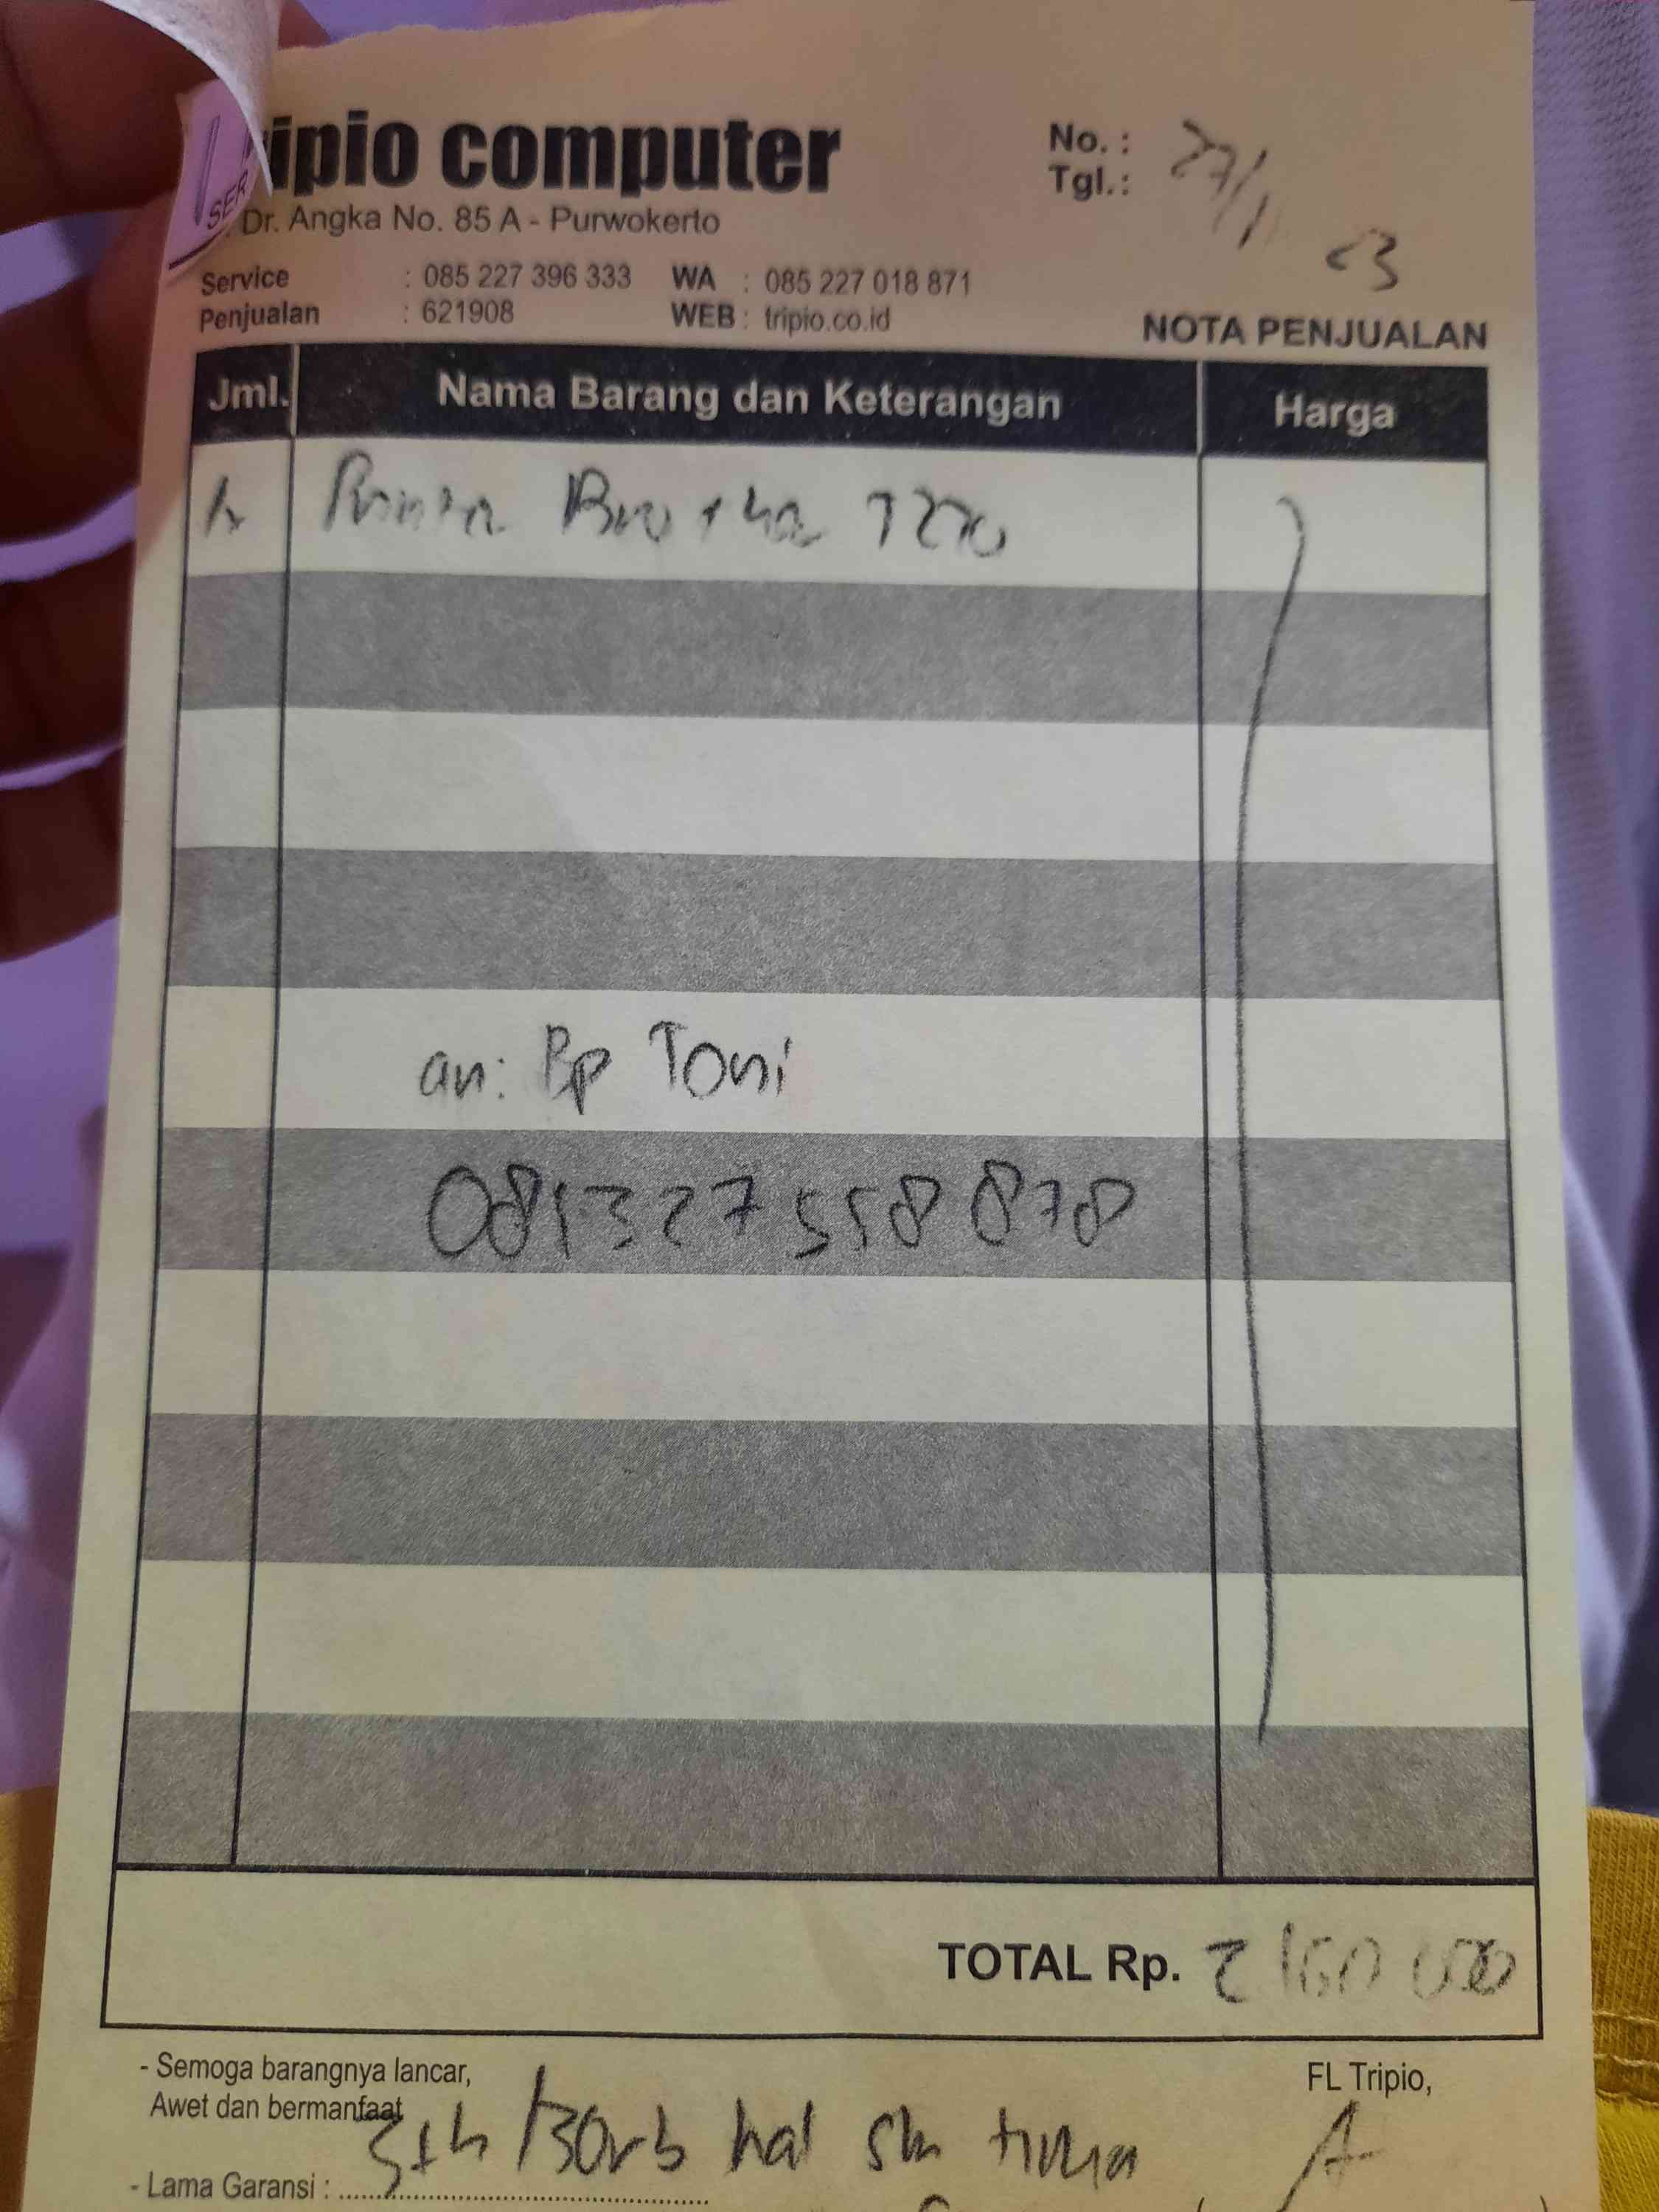 ipio computer
No. :
Tgl. : 27/1 23
SER
Dr. Angka No. 85 A - Purwokerto
Service : 085 227 396 333 WA : 085 227 018 871
Penjualan : 621908 WEB : tripio.co.id
NOTA PENJUALAN
Jml. Nama Barang dan Keterangan Harga
Printer Brother T220
an: Bp Toni
081327558878
TOTAL Rp. 2160 000
- Semoga barangnya lancar,
Awet dan bermanfaat
FL Tripio,
3th/30rb hal
- Lama Garansi :